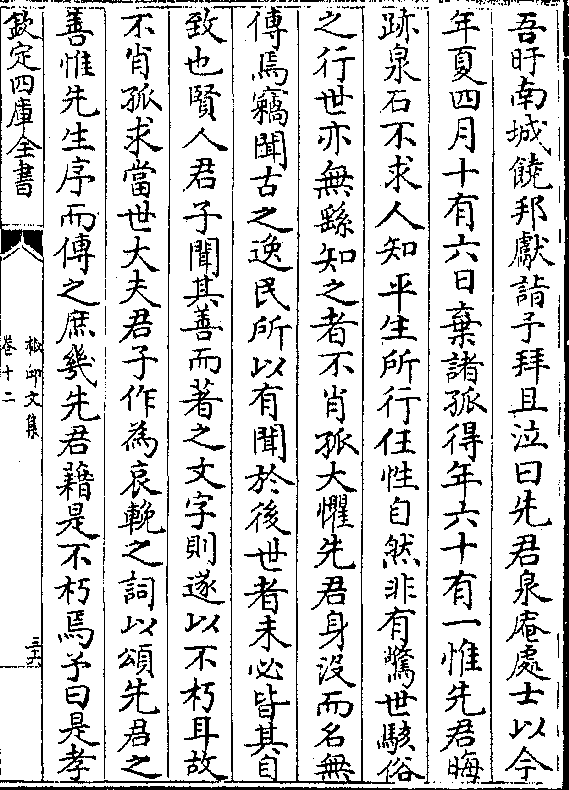 吾盱南城饒邦獻詣予拜且泣曰先君泉庵處士以今
年夏四月十有六日棄諸孤得年六十有一惟先君晦
跡泉石不求人知平生所行任性自然非有驚世駭俗
之行世亦無繇知之者不肖孤大懼先君身沒而名無
傳焉竊聞古之逸民所以有聞於後世者未必皆其自
致也賢人君子聞其善而著之文字則遂以不朽耳故
不肖孤求當世大夫君子作為哀輓之詞以頌先君之
善惟先生序而傳之庶幾先君藉是不朽焉予曰是孝
欽定四庫全書
椒邱文集
卷十二